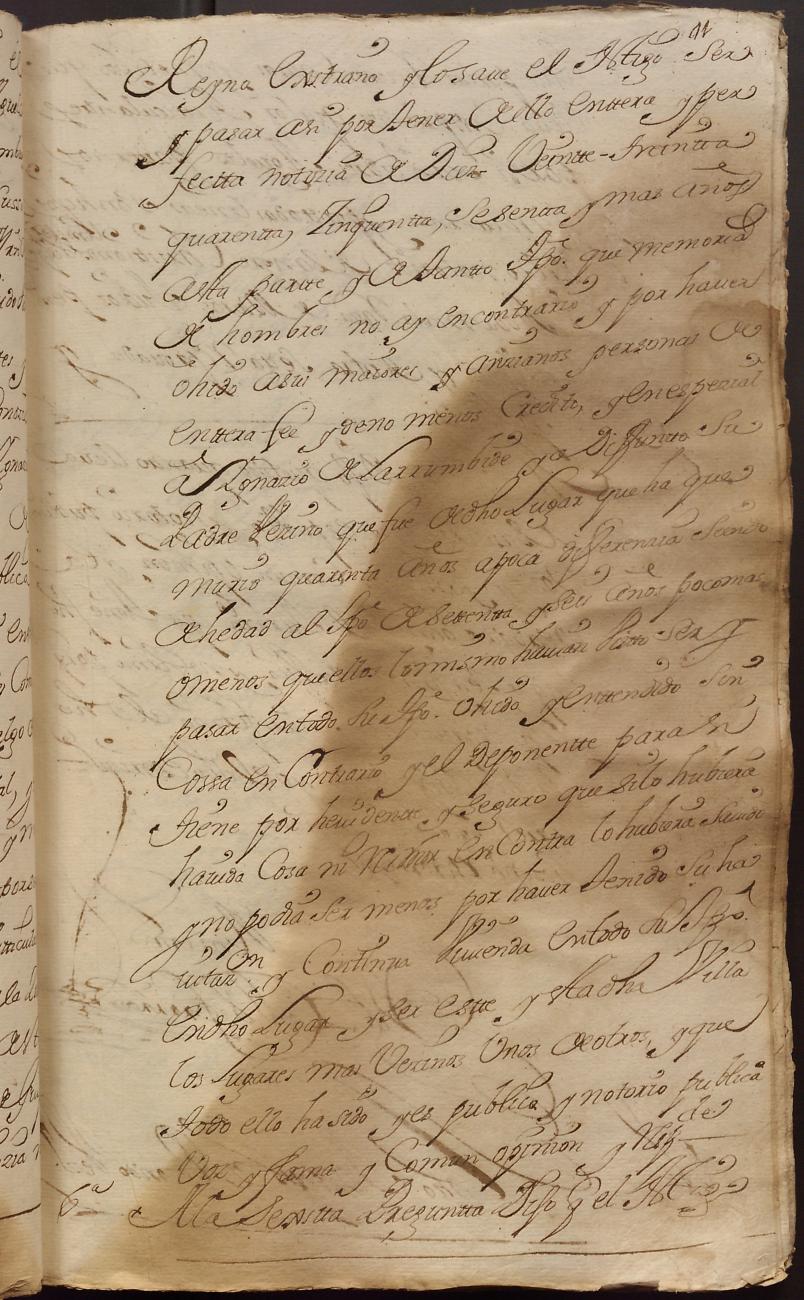 11
Reyno Exstraño y lo save el Attigo Ser
y pasar asi por tener de ello enttera y per
fectta notizia de Diez Veintte - treintta
quarentta, Zinquentta, Sesentta y mas años
a esta partte, y de tantto tpo. que memoria
de hombres no ay en contrario y por haver
ohido a sus maiores y anzianos personas de
enttera fee y de no menos Credito, y en espezial
a Ygnazio de Larrumbide ya Difuntto Su
Padre Vezino que fue de dho Lugar que ha que
murio quarenta años a poca diferenzia siendo
de hedad al tpo de settentta y seis años poco mas
o menos que ellos lo mismo havian visto ser y
pasar en todo su tpo. ohido y enttendido sin
Cossa en Contrario y el Deponentte para si
tiene por hevidentte y seguro que si lo hubiera
havido Cosa ni en Contra lo hubiera Savido
y no podia ser menos por haver tenido Su ha
vitaz on y Continua Vivienda en todo su tpo.
en dho Lugar y ser estte y esta dha Villa
los Lugares mas Vezinos Unos de otros, y que
todo ello ha sido y es publico y notorio publica
Voz y fama y Comun opinion y
6ª A la Sexstta Preguntta Dijo q el